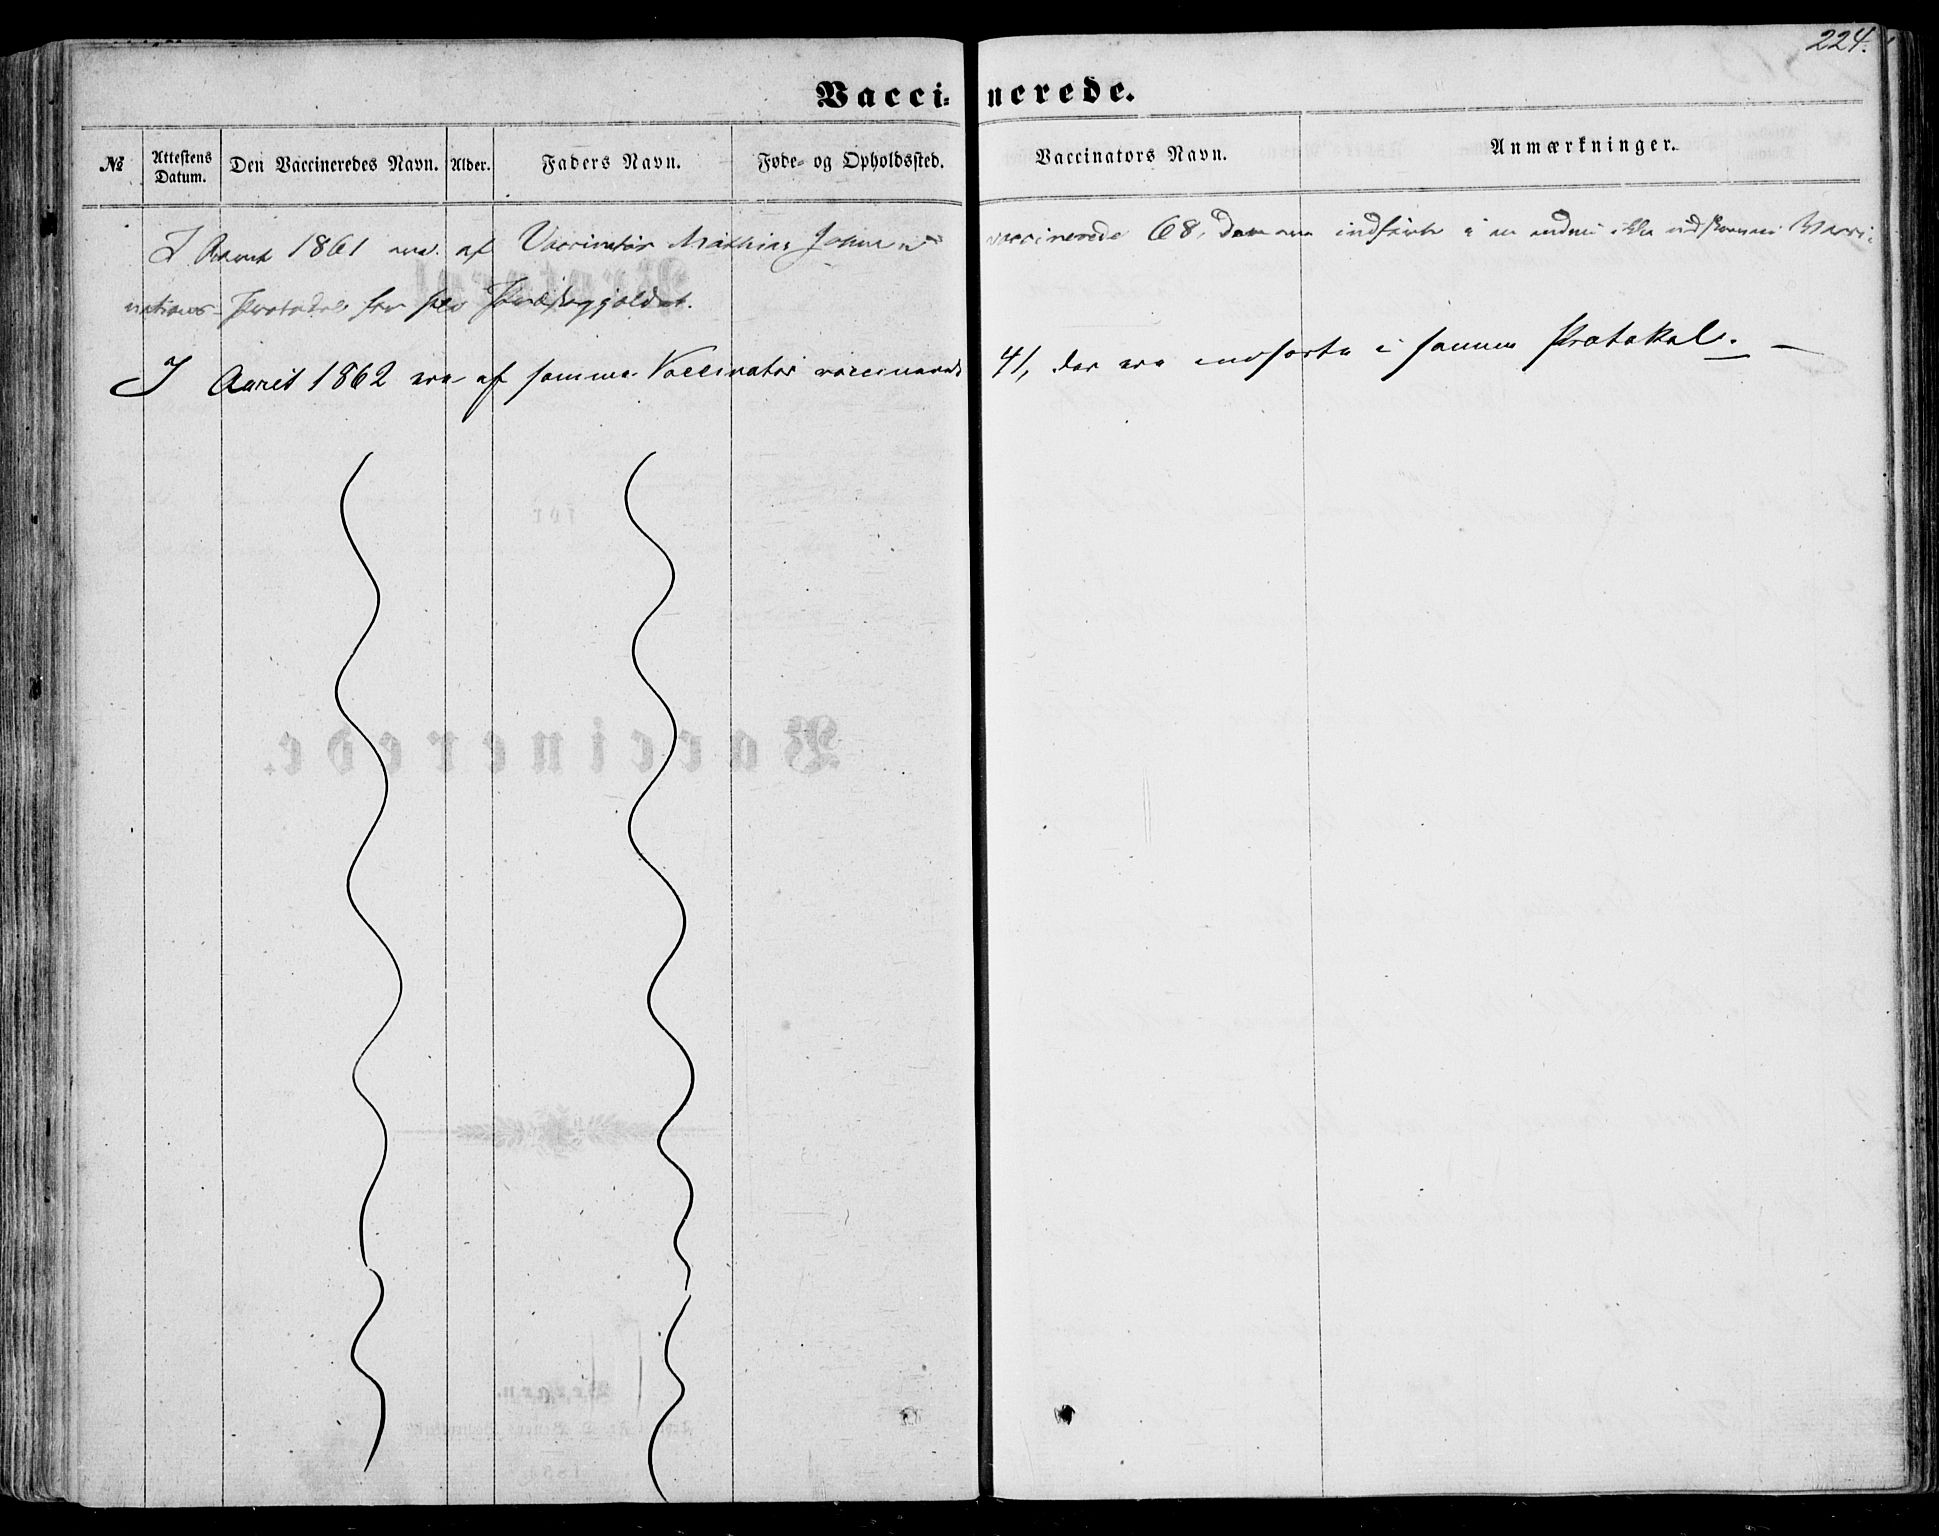 224.
Vaccinerede.
№ Attestens Datum. Den Vaccineredes Navn. Alder. Faders Navn. Føde- og Opholdssted. Vaccinators Navn. Anmærkninger.
I Aaret 1861 ere af Vaccinatør Mathias vaccinerede 68, der ere indførte i en endnu ikke udskreven Vacci-
nations-Protokol for hele Præstegjældet.
I Aaret 1862 ere af samme Vaccinatør vaccinerede 41, der ere indførte i samme Protokol. —